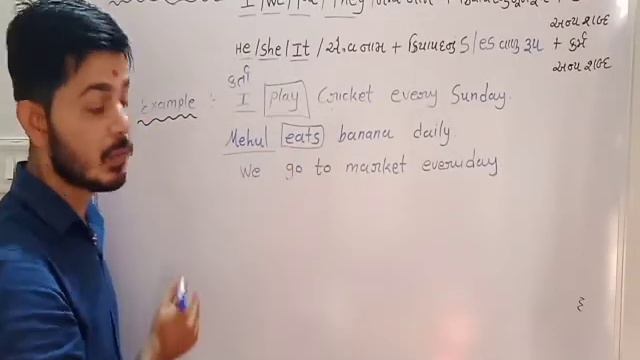 I / We / You / They /
અન્ય શબ્દ
He / She / It / એ.વ નામ + ક્રિયાપદનું S/es વાળુ રૂપ + કર્મ
અન્ય શબ્દ
કર્તા
Example : I play Cricket every Sunday.
Mehul eats banana daily.
We go to market everyday